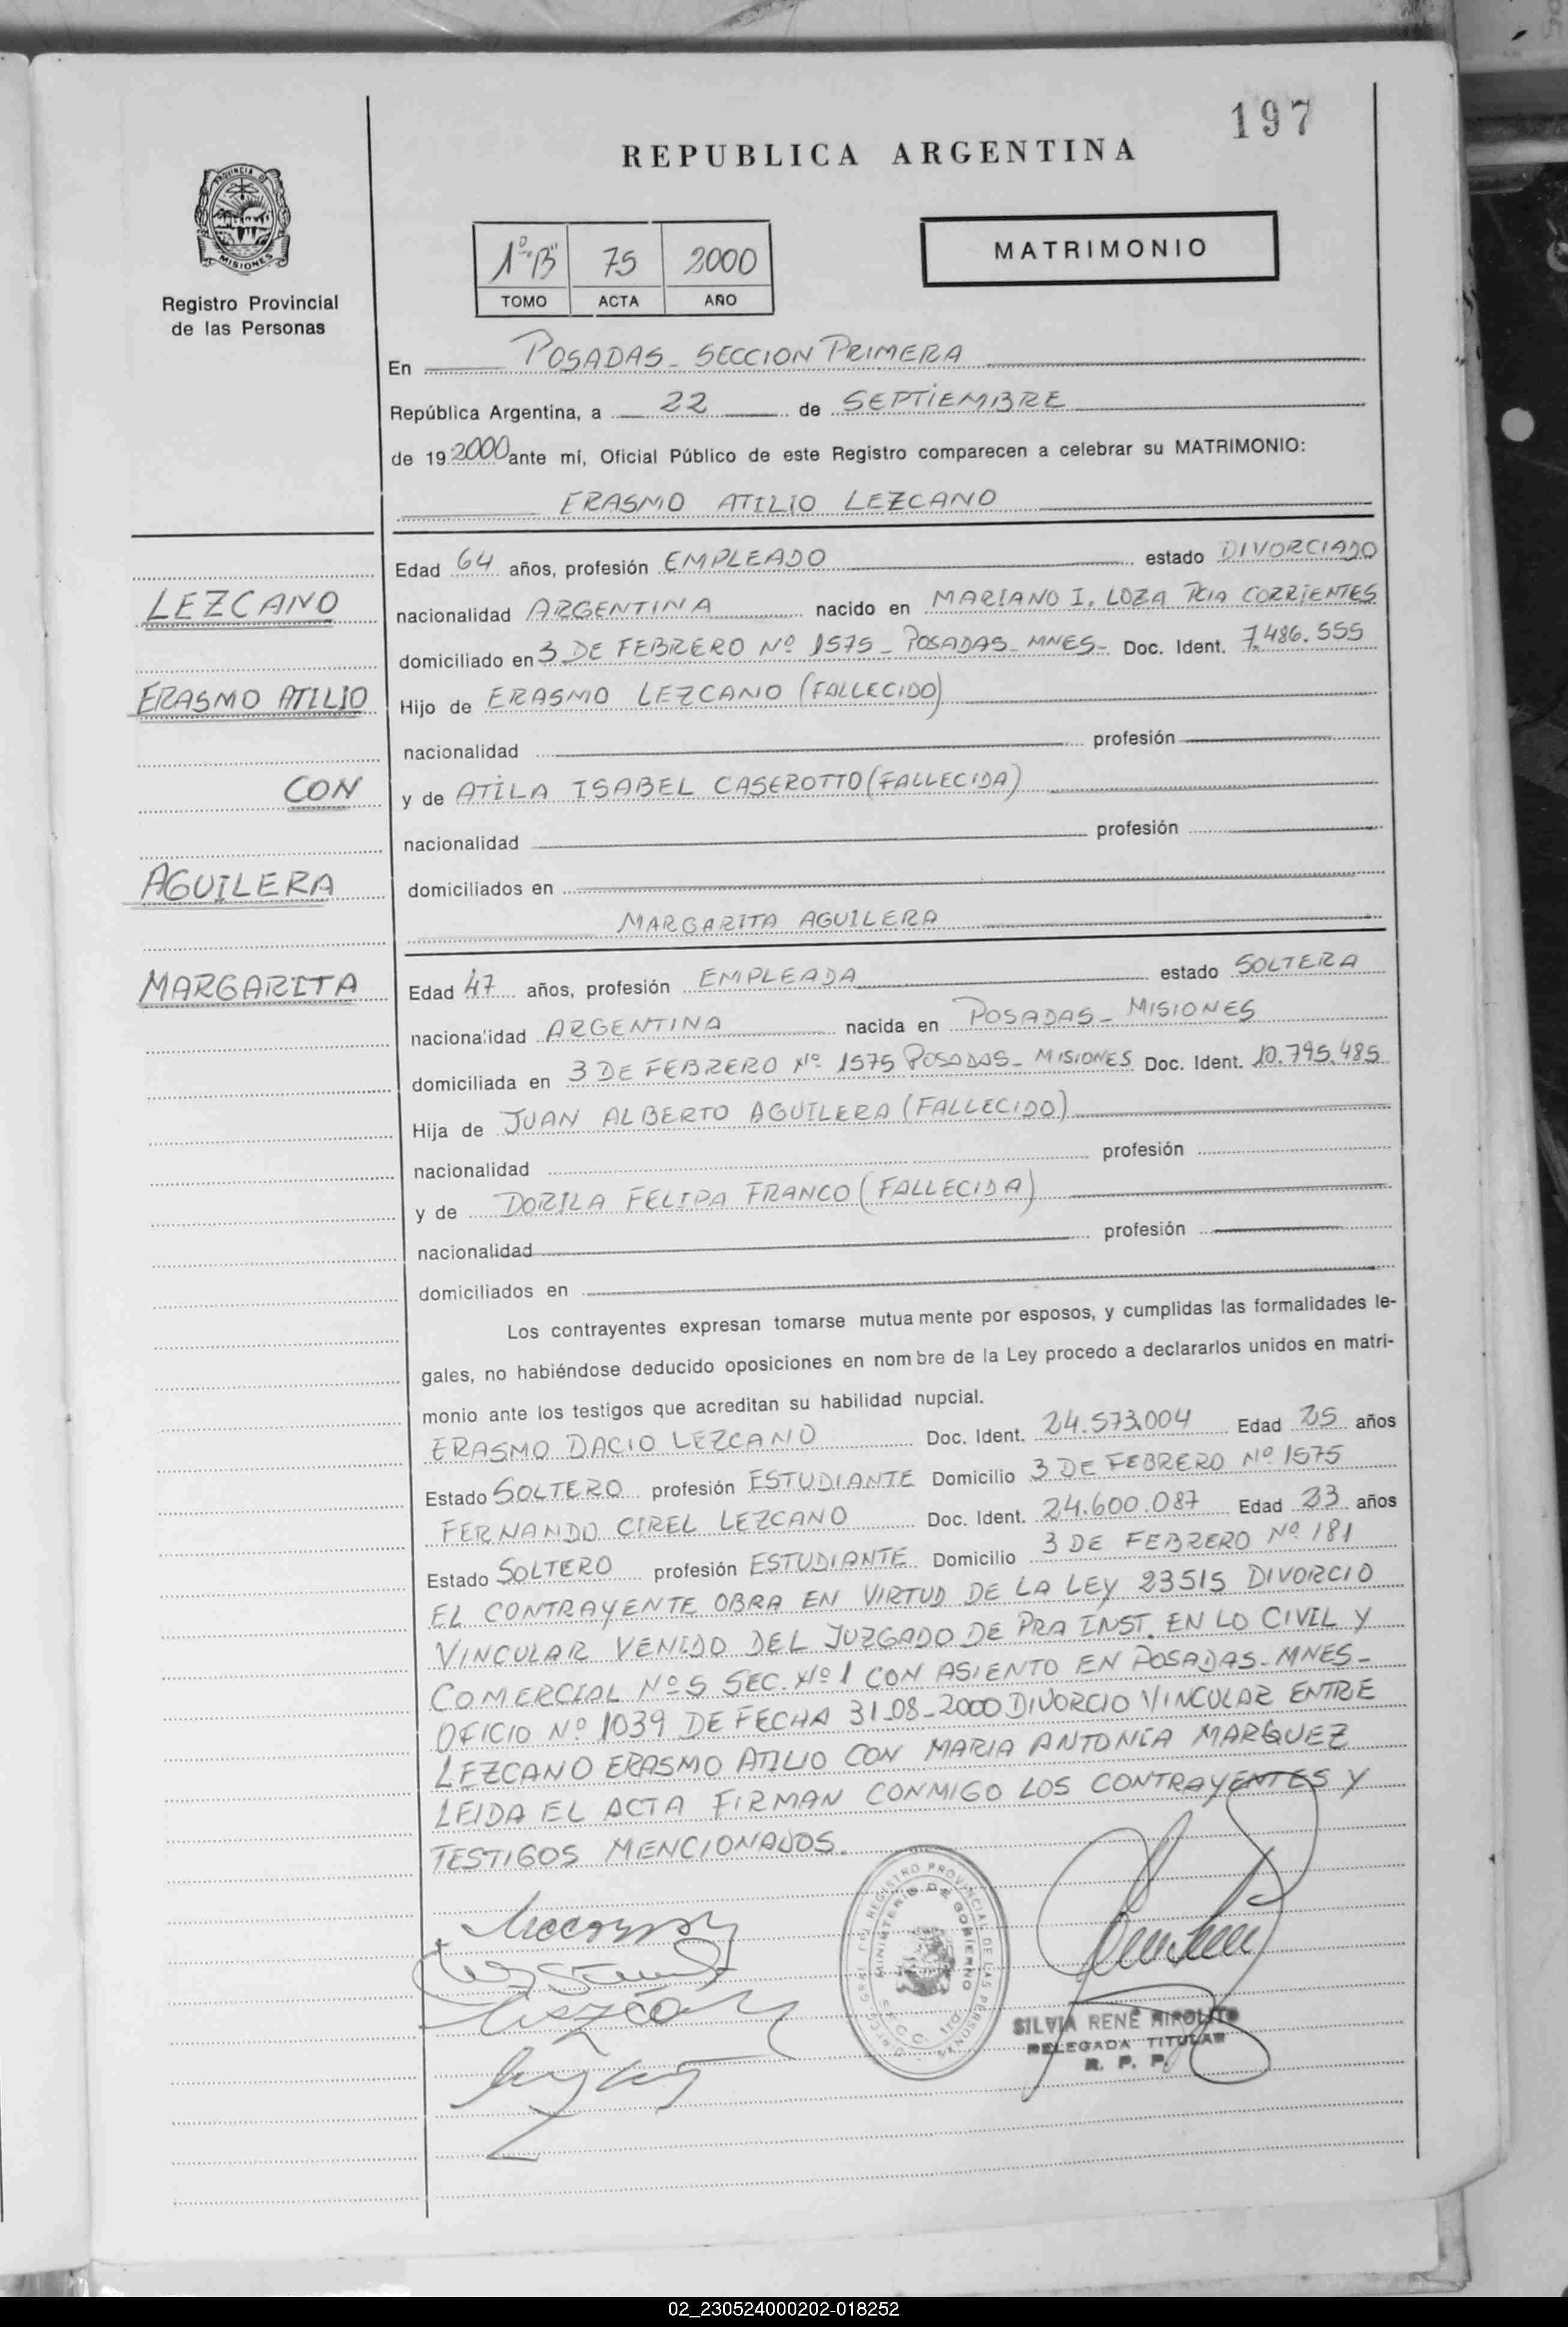 197
REPUBLICA ARGENTINA
PROVINCIA DE
MISIONES
Registro Provincial
de las Personas
1º "B" 75 2000
TOMO ACTA AÑO
MATRIMONIO
En POSADAS - SECCION PRIMERA
República Argentina, a 22 de SEPTIEMBRE
de 19 2000 ante mí, Oficial Público de este Registro comparecen a celebrar su MATRIMONIO:
ERASMO ATILIO LEZCANO
Edad 64 años, profesión EMPLEADO estado DIVORCIADO
LEZCANO
nacionalidad ARGENTINA nacido en MARIANO I. LOZA PCIA CORRIENTES
domiciliado en 3 DE FEBRERO Nº 1575 - POSADAS - MNES - Doc. Ident. 7.486.555
ERASMO ATILIO
Hijo de ERASMO LEZCANO (FALLECIDO)
nacionalidad profesión
CON
y de ATILA ISABEL CASEROTTO (FALLECIDA)
nacionalidad profesión
AGUILERA
domiciliados en
MARGARITA AGUILERA
MARGARITA
Edad 47 años, profesión EMPLEADA estado SOLTERA
nacionalidad ARGENTINA nacida en POSADAS - MISIONES
domiciliada en 3 DE FEBRERO Nº 1575 POSADAS - MISIONES Doc. Ident. 10.795.485
Hija de JUAN ALBERTO AGUILERA (FALLECIDO)
nacionalidad profesión
y de DORILA FELIPA FRANCO (FALLECIDA)
nacionalidad profesión
domiciliados en
Los contrayentes expresan tomarse mutua mente por esposos, y cumplidas las formalidades le-
gales, no habiéndose deducido oposiciones en nom bre de la Ley procedo a declararlos unidos en matri-
monio ante los testigos que acreditan su habilidad nupcial.
ERASMO DACIO LEZCANO Doc. Ident. 24.573.004 Edad 25 años
Estado SOLTERO profesión ESTUDIANTE Domicilio 3 DE FEBRERO Nº 1575
FERNANDO CIREL LEZCANO Doc. Ident. 24.600.087 Edad 23 años
Estado SOLTERO profesión ESTUDIANTE Domicilio 3 DE FEBRERO Nº 181
EL CONTRAYENTE OBRA EN VIRTUD DE LA LEY 23515 DIVORCIO
VINCULAR VENIDO DEL JUZGADO DE PRA INST. EN LO CIVIL Y
COMERCIAL Nº 5 SEC. Nº 1 CON ASIENTO EN POSADAS - MNES -
OFICIO Nº 1039 DE FECHA 31-08-2000 DIVORCIO VINCULAR ENTRE
LEZCANO ERASMO ATILIO CON MARIA ANTONIA MARQUEZ
LEIDA EL ACTA FIRMAN CONMIGO LOS CONTRAYENTES Y
TESTIGOS MENCIONADOS.
REGISTRO PROVINCIAL DE LAS PERSONAS
MINISTERIO DE GOBIERNO
SILVIA RENÉ RIPOLITO
DELEGADA TITULAR
R. P. P.
02_230524000202-018252